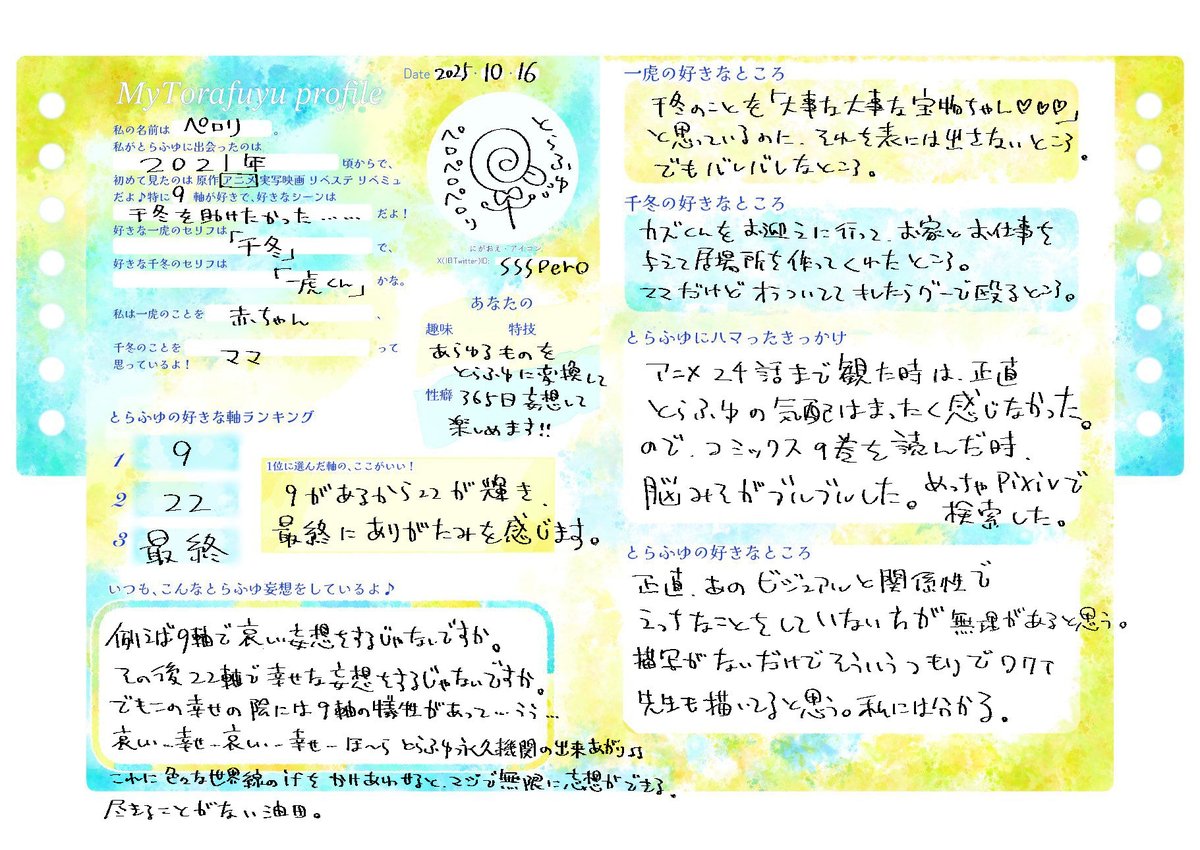 MyTorafuyu profile
Date 2025・10・16
私の名前は ペロリ 。
私がとらふゆに出会ったのは
2021年 頃からで、
初めて見たのは 原作 アニメ 実写映画 リベステ リベミュ
だよ♪特に 9 軸が好きで、好きなシーンは
千冬を助けたかった…… だよ！
好きな一虎のセリフは
「千冬」 で、
好きな千冬のセリフは
「一虎くん」 かな。
私は一虎のことを 赤ちゃん 、
千冬のことを ママ って
思っているよ！
とらふゆ
ペロペロペロリ
にがおえ・アイコン
X(旧Twitter)ID: SSSpero
あなたの
趣味 特技
あらゆるものを
とらふゆに変換して
性癖 365日妄想して
楽しめます!!
とらふゆの好きな軸ランキング
1 9
2 22
3 最終
1位に選んだ軸の、ここがいい！
9があるから22が輝き、
最終にありがたみを感じます。
いつも、こんなとらふゆ妄想をしているよ♪
例えば9軸で哀しい妄想をするじゃないですか。
その後22軸で幸せな妄想をするじゃないですか。
でもこの幸せの陰には9軸の犠牲があって…うう…
哀しい…幸せ…哀しい…幸せ…ほ〜ら とらふゆ永久機関の出来あがり♫
これに色々な世界線のifをかけあわせると、マジで無限に妄想ができる。
尽きることがない油田。
一虎の好きなところ
千冬のことを「大事な大事な宝物ちゃん♡♡♡」
と思っているのに、それを表には出さないところ
でもバレバレなところ。
千冬の好きなところ
カズくんをお迎えに行って、お家とお仕事を
与えて居場所を作ってくれたところ。
ママだけどオラついててもしたらグーで殴るところ。
とらふゆにハマったきっかけ
アニメ24話まで観た時は、正直
とらふゆの気配はまったく感じなかった。
ので、コミックス9巻を読んだ時、
脳みそがブルブルした。めっちゃpixivで
検索した。
とらふゆの好きなところ
正直、あのビジュアルと関係性で
えっちなことをしていない方が無理があると思う。
描写がないだけでそういうつもりでワクイ
先生も描いてると思う。私には分かる。